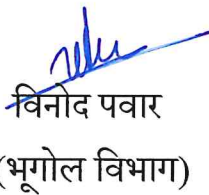 विनोद पवार
(भूगोल विभाग)